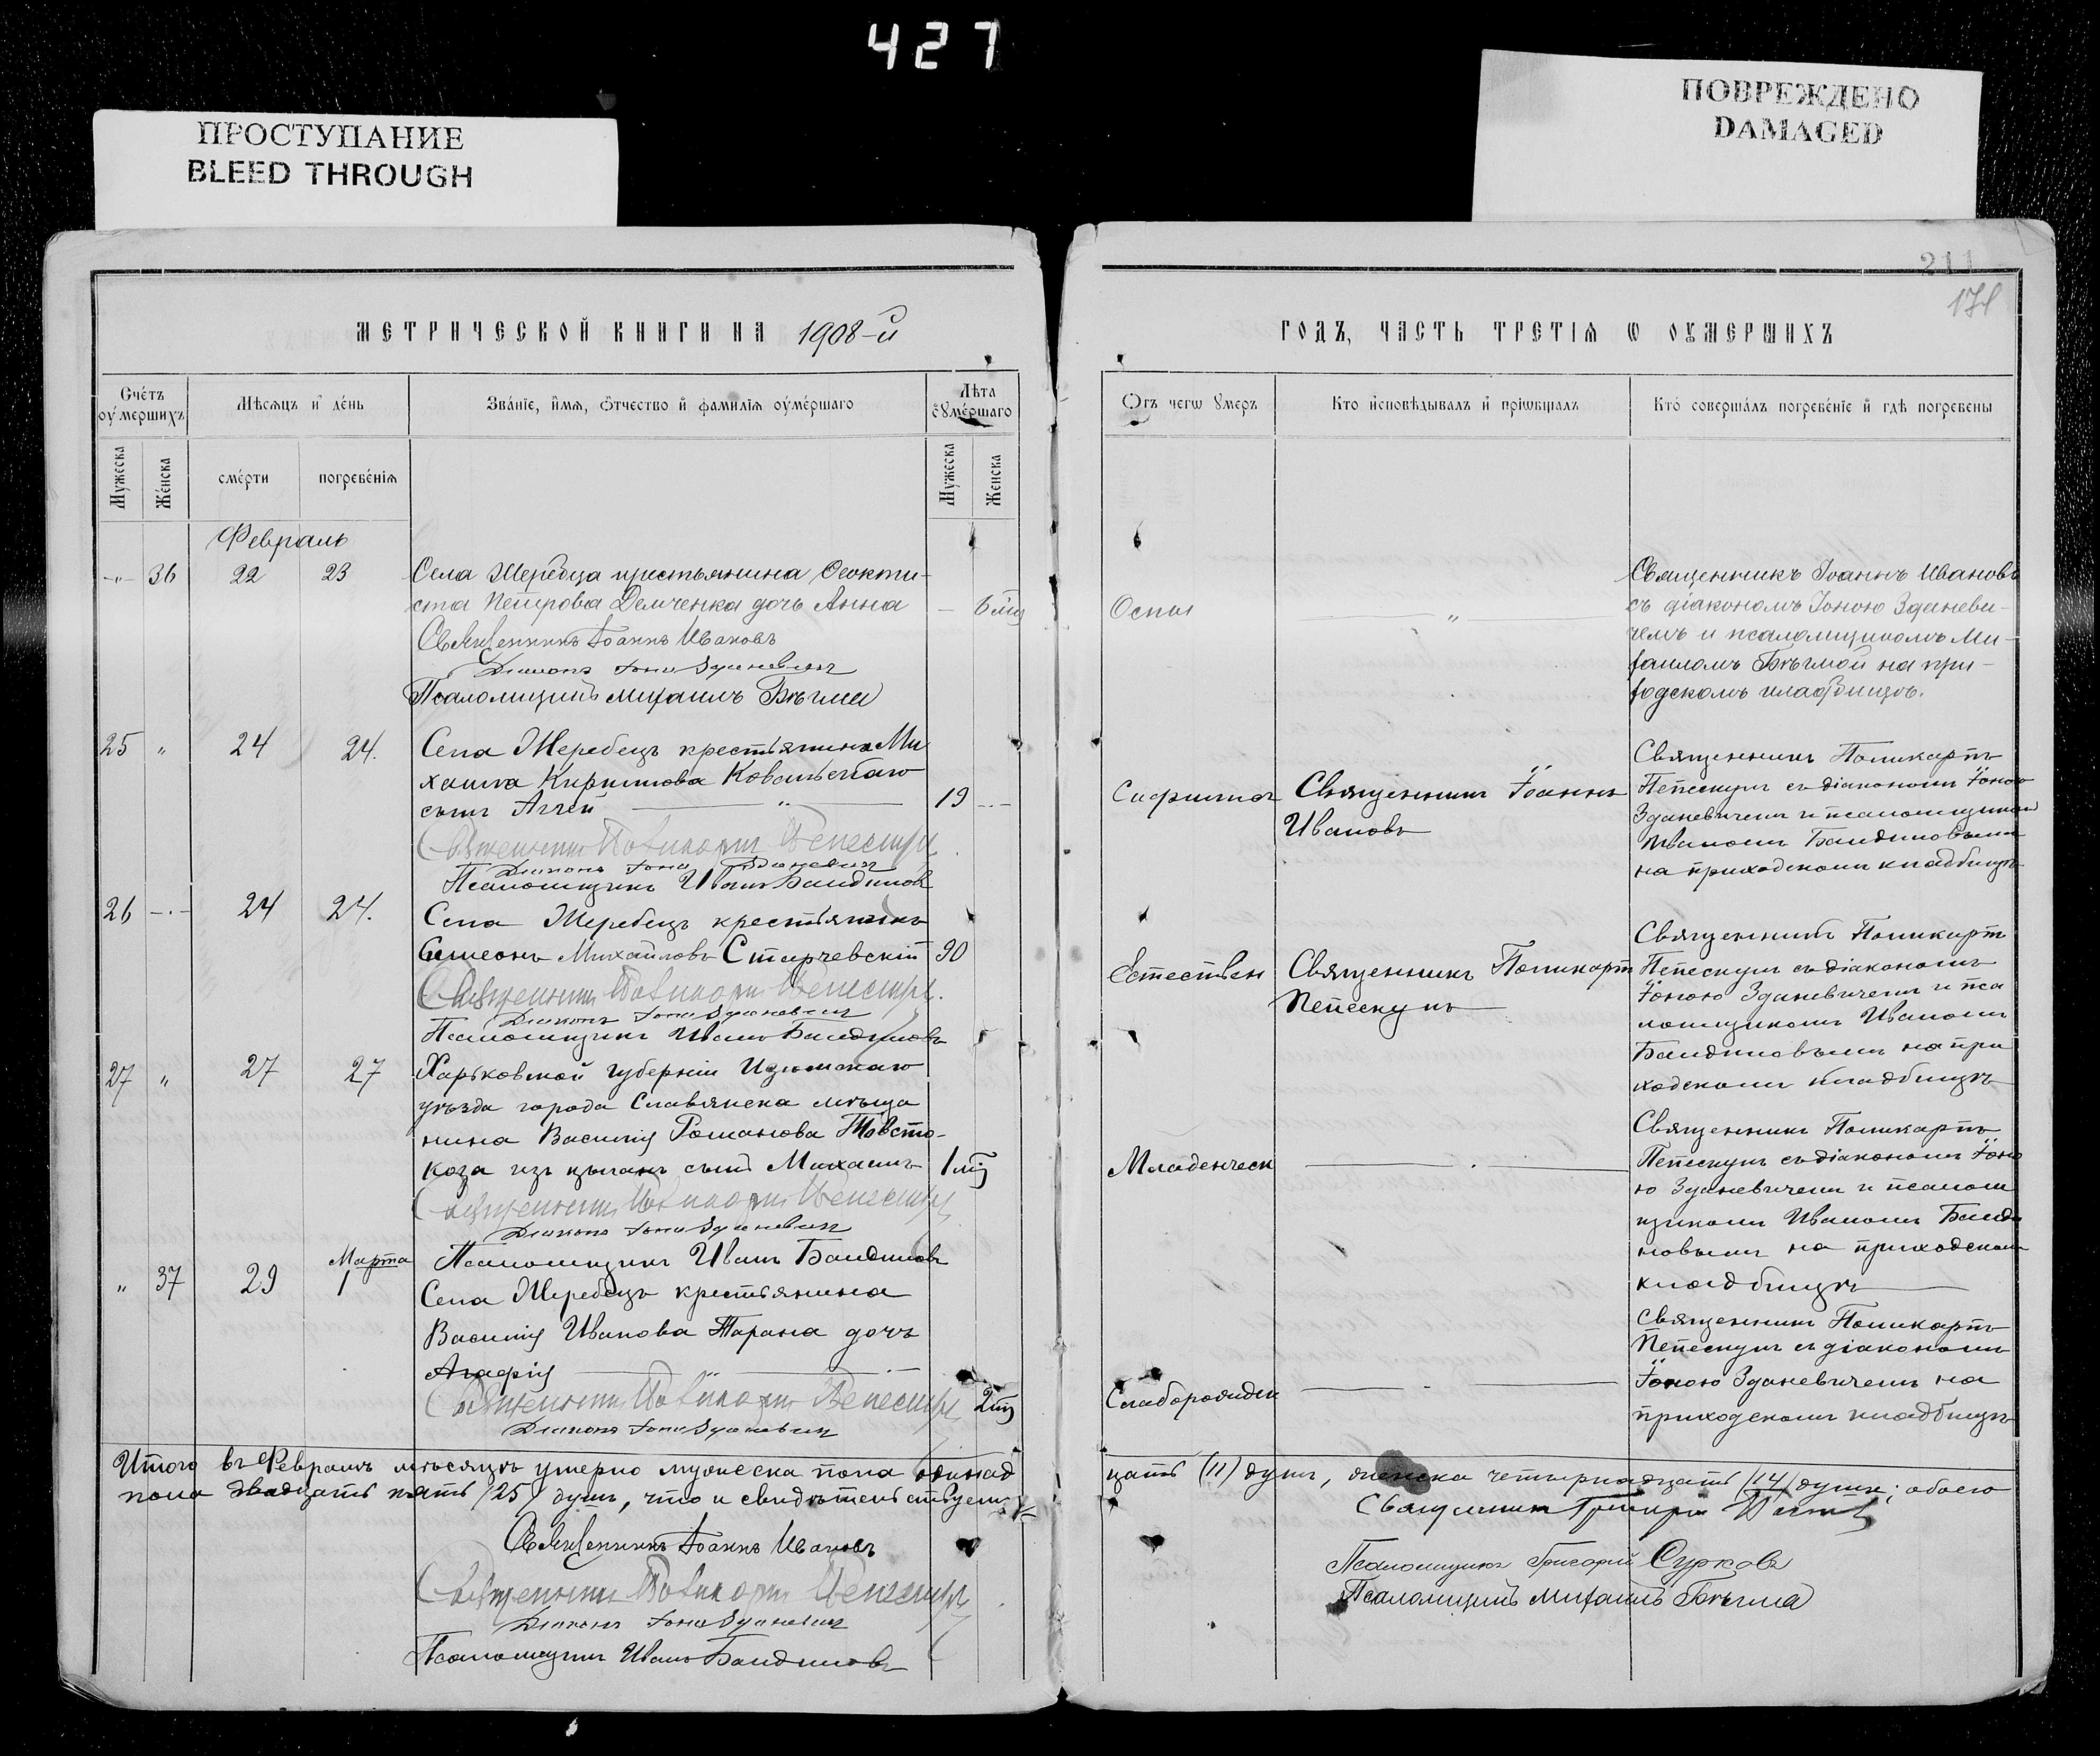 427
ПРОСТУПАНИЕ
BLEED THROUGH
ПОВРЕЖДЕНО
DAMAGED
211
171
МЕТРИЧЕСКОЙ КНИГИ НА 1908-й
Счетъ оумершихъ
Мѣсяцъ и день
Званіе, имя, отчество и фамилія оумершаго
Лѣта оумершаго
Мужеска
Женска
смерти
погребенія
Мужеска
Женска
Февраль
-"- 36 22 23 Села Жеребца крестьянина Ѳеокти-
ста Петрова Демченка дочь Анна — 6 мц
Священникъ Іоаннъ Ивановъ
Діаконъ Іона Зданевичъ
Псаломщикъ Михаилъ Бѣгма
25 " 24 24. Села Жеребецъ крестьянина Ми
хаила Кириллова Ковалевскаго
сынъ Аггей — " — 19 -.-
Священникъ Поликарпъ Пепескулъ
Діаконъ Іона Зданевичъ
Псаломщикъ Иванъ Бандиловъ
26 -.- 24 24. Села Жеребецъ крестьянинъ
Симеонъ Михайловъ Старчевскій 90
Священникъ Поликарпъ Пепескулъ.
Діаконъ Іона Зданевичъ
Псаломщикъ Иванъ Бандиловъ
27 " 27 27 Харьковской губерніи Изюмскаго
уѣзда города Славянска мѣща
нина Василія Романова Товсто-
коза изъ цыганъ сынъ Михаилъ 1 мц
Священникъ Поликарпъ Пепескулъ
Діаконъ Іона Зданевичъ
Псаломщикъ Иванъ Бандиловъ
" 37 29 Марта 1
Села Жеребецъ крестьянина
Василія Иванова Тарана дочь
Агафія — " —
Священникъ Поликарпъ Пепескулъ 2 мц
Діаконъ Іона Зданевичъ
Итого въ Февралѣ мѣсяцѣ умерло мужеска пола одиннад
пола двадцать пять (25) душъ, что и свидѣтельствуемъ
Священникъ Іоаннъ Ивановъ
Священникъ Поликарпъ Пепескулъ
Діаконъ Іона Зданевичъ
Псаломщикъ Иванъ Бандиловъ
ГОДЪ, ЧАСТЬ ТРЕТІЯ Ѡ ОУМЕРШИХЪ
Отъ чегѡ умеръ
Кто исповѣдывалъ и пріѡбщалъ
Кто совершалъ погребеніе и гдѣ погребены
Оспы — " —
Священникъ Іоаннъ Ивановъ
съ діакономъ Іоною Зданеви-
чемъ и псаломщикомъ Ми-
хаиломъ Бѣгмой на при-
ходскомъ кладбищѣ.
Священникъ Іоаннъ
Ивановъ
Священникъ Поликарпъ
Пепескулъ съ діакономъ Іоною
Зданевичемъ и псаломщикомъ
Иваномъ Бандиловымъ
на приходскомъ кладбищѣ
Естествен
Священникъ Поликарп
Пепескулъ
Священникъ Поликарпъ
Пепескулъ съ діакономъ
Іоною Зданевичемъ и пса
ломщикомъ Иваномъ
Бандиловымъ на при
ходскомъ кладбищѣ
Младенческ — . —
Священникъ Поликарпъ
Пепескулъ съ діакономъ Іоно
ю Зданевичемъ и псалом
щикомъ Иваномъ Банди
ловымъ на приходскомъ
кладбищѣ
Слаборожден — - —
Священникъ Поликарпъ
Пепескулъ съ діакономъ
Іоною Зданевичемъ на
приходскомъ кладбищѣ
цать (11) душъ, женска четырнадцать (14) душъ; обоего
Священникъ
Псаломщикъ Григорій Сурковъ
Псаломщикъ Михаилъ Бѣгма